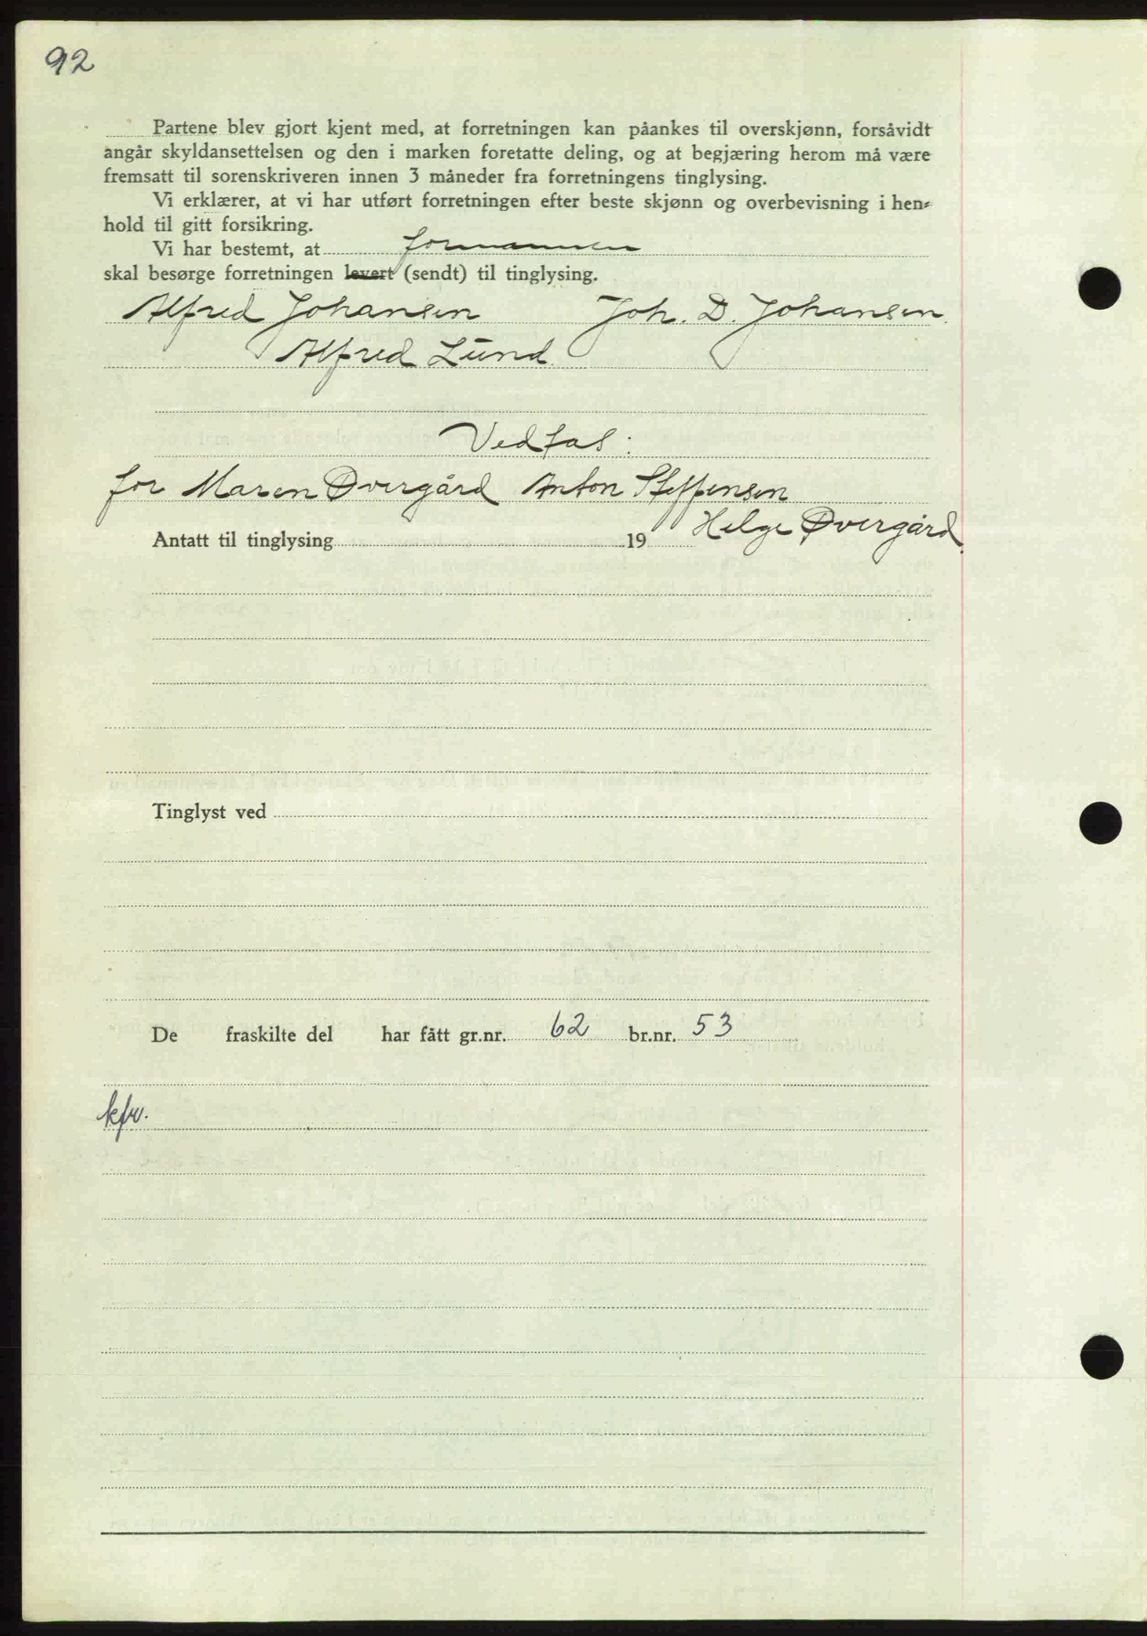 92
Partene blev gjort kjent med, at forretningen kan påankes til overskjønn, forsåvidt
angår skyldansettelsen og den i marken foretatte deling, og at begjæring herom må være
fremsatt til sorenskriveren innen 3 måneder fra forretningens tinglysing.
Vi erklærer, at vi har utført forretningen efter beste skjønn og overbevisning i hen-
hold til gitt forsikring.
Vi har bestemt, at formannen
skal besørge forretningen levert (sendt) til tinglysing.
Alfred Johansen Joh. D. Johansen.
Alfred Lund
Vedtas:
for Maren Øvergård Anton Steffensen
Helge Øvergård.
Antatt til tinglysing 19
Tinglyst ved
De fraskilte del har fått gr.nr. 62 br.nr. 53
kfr.